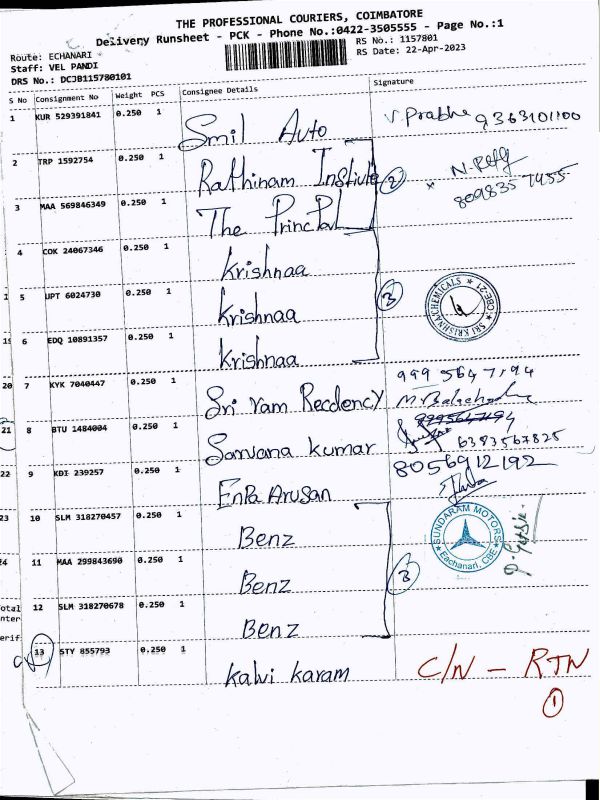 THE PROFESSIONAL COURIERS, COIMBATORE
Delivery Runsheet - PCK - Phone No.:0422-3505555 - Page No.:1
Route: ECHANARI
RS No.: 1157801
Staff: VEL PANDI
RS Date: 22-Apr-2023
DRS No.: DCJB115780101
S No Consignment No Weight PCS Consignee Details Signature
1 KUR 529391841 0.250 1 Smil Auto V. Prabhu 9363101100
2 TRP 1592754 0.250 1 Rathinam Institute
2
8098357455
3 MAA 569846349 0.250 1 The Principal
4 COK 24067346 0.250 1 Krishnaa
1 5 UPT 6024730 0.250 1 Krishnaa 3
SRI KRISHNA CHEMICALS ★ CBE-21 ★
19 6 EDQ 10891357 0.250 1 Krishnaa
20 7 KYK 7040447 0.250 1 Sri ram Recdency
9995647194
21 8 BTU 1484004 0.250 1 Sarvana kumar
6383567825
22 9 KDI 239257 0.250 1 Enpa Arusan
8056912192
23 10 SLM 318270457 0.250 1 Benz
SUNDARAM MOTORS
Eachanari, CBE
24 11 MAA 299843690 0.250 1 Benz 3
Total 12 SLM 318270678 0.250 1 Benz
13 STY 855793 0.250 1 Kalvi Karam C/N - RTN
1